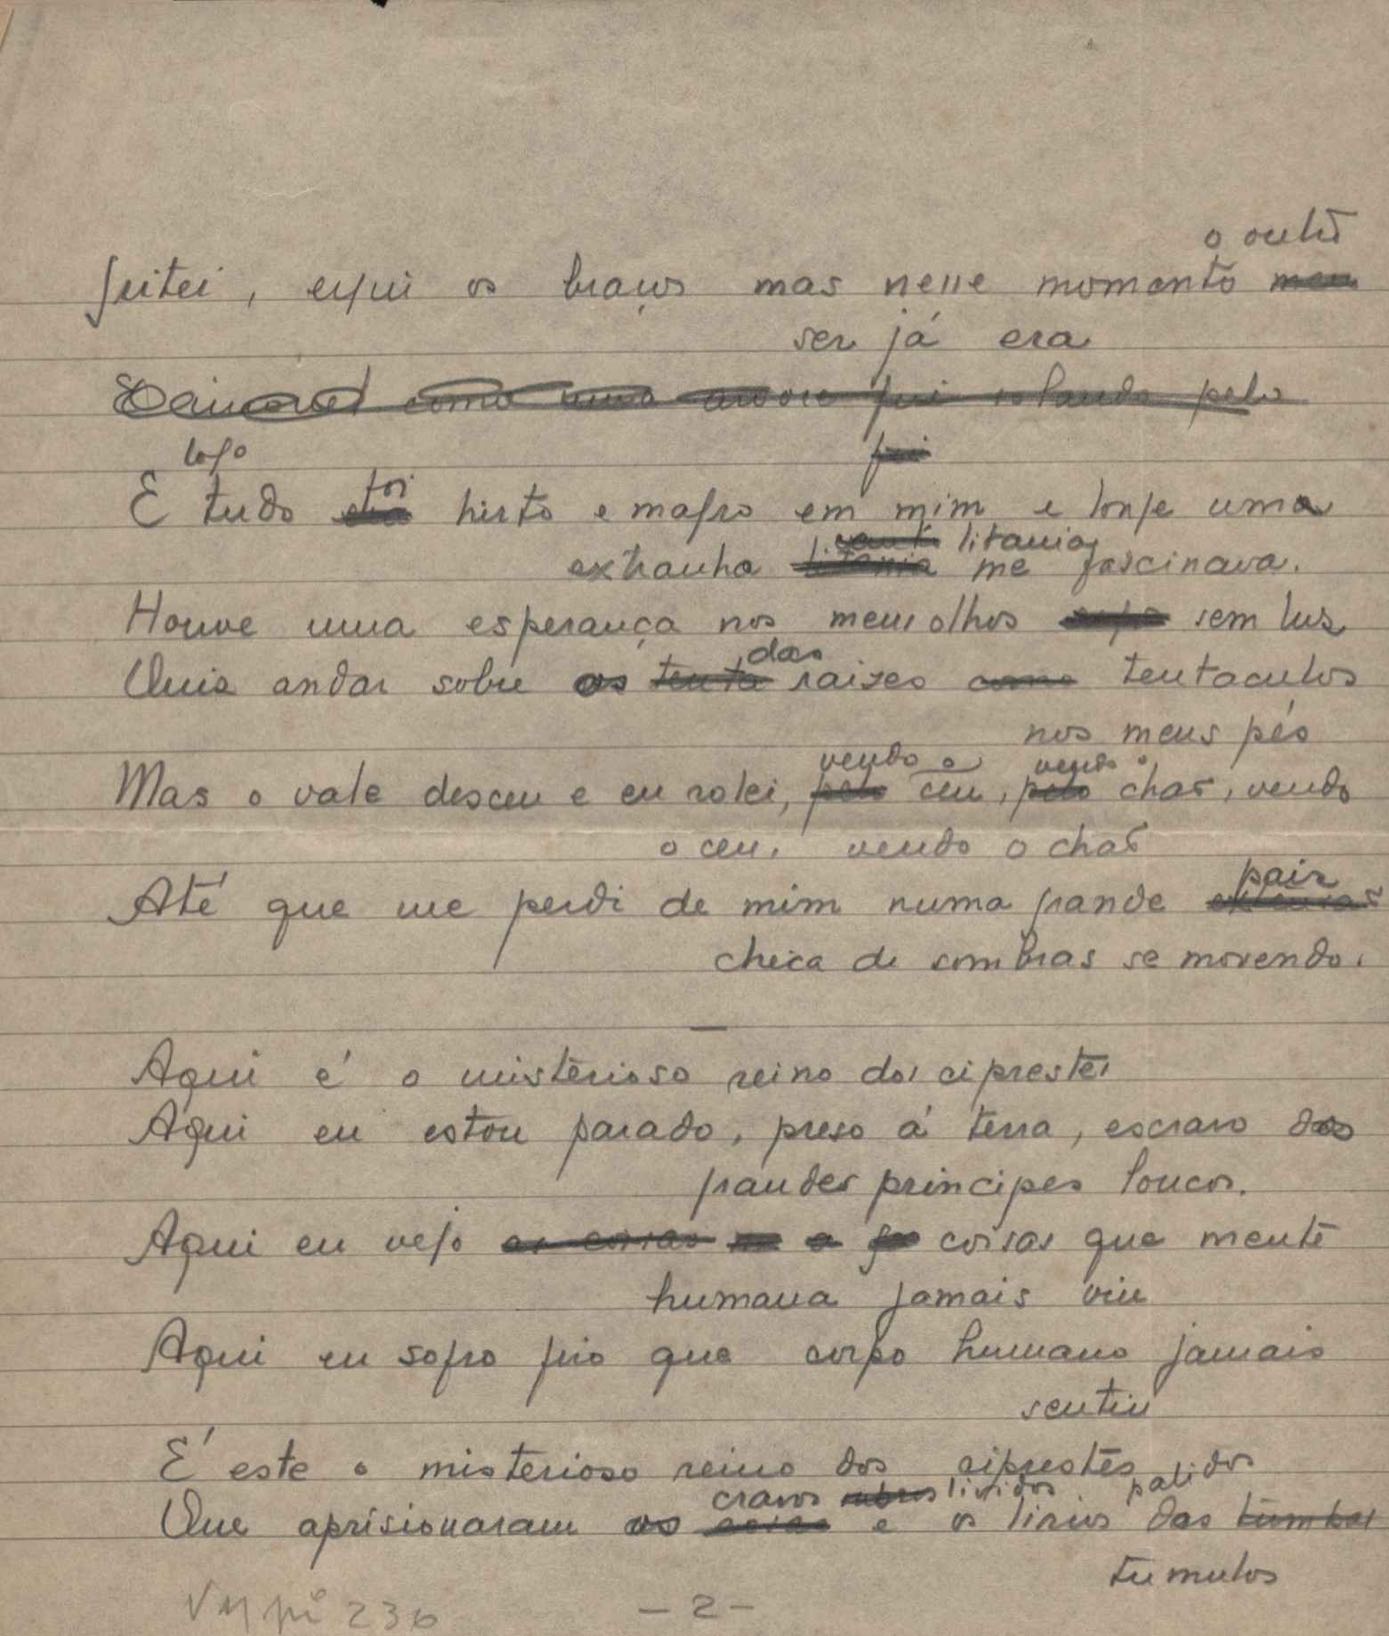 o outro
Gritei, ergui os braços mas nesse momento meu
ser já era
como uma arvore fui rolando pelo
logo
fui
foi
E tudo era hirto e magro em mim e longe uma
litania
extranha litania me fascinava.
Houve uma esperança nos meus olhos sem luz
das
Quis andar sobre as tenta raizes como tentaculos
nos meus pés
vendo o vendo o
Mas o vale desceu e eu rolei, pelo ceu, pelo chão, vendo
o ceu, vendo o chão
paiz
Até que me perdi de mim numa grande extensão
cheia de sombras se movendo.
—
Aqui é o misterioso reino dos ciprestes
Aqui eu estou parado, preso á terra, escravo dos
grandes principes loucos.
Aqui eu vejo as coisas a coisas que mente
humana jamais viu
Aqui eu sofro frio que corpo humano jamais
sentiu
É este o misterioso reino dos ciprestes
cravos rubros lividos palidos
Que aprisionaram os e os lirios dos tumbas
tumulos
VM pi 236
- 2 -